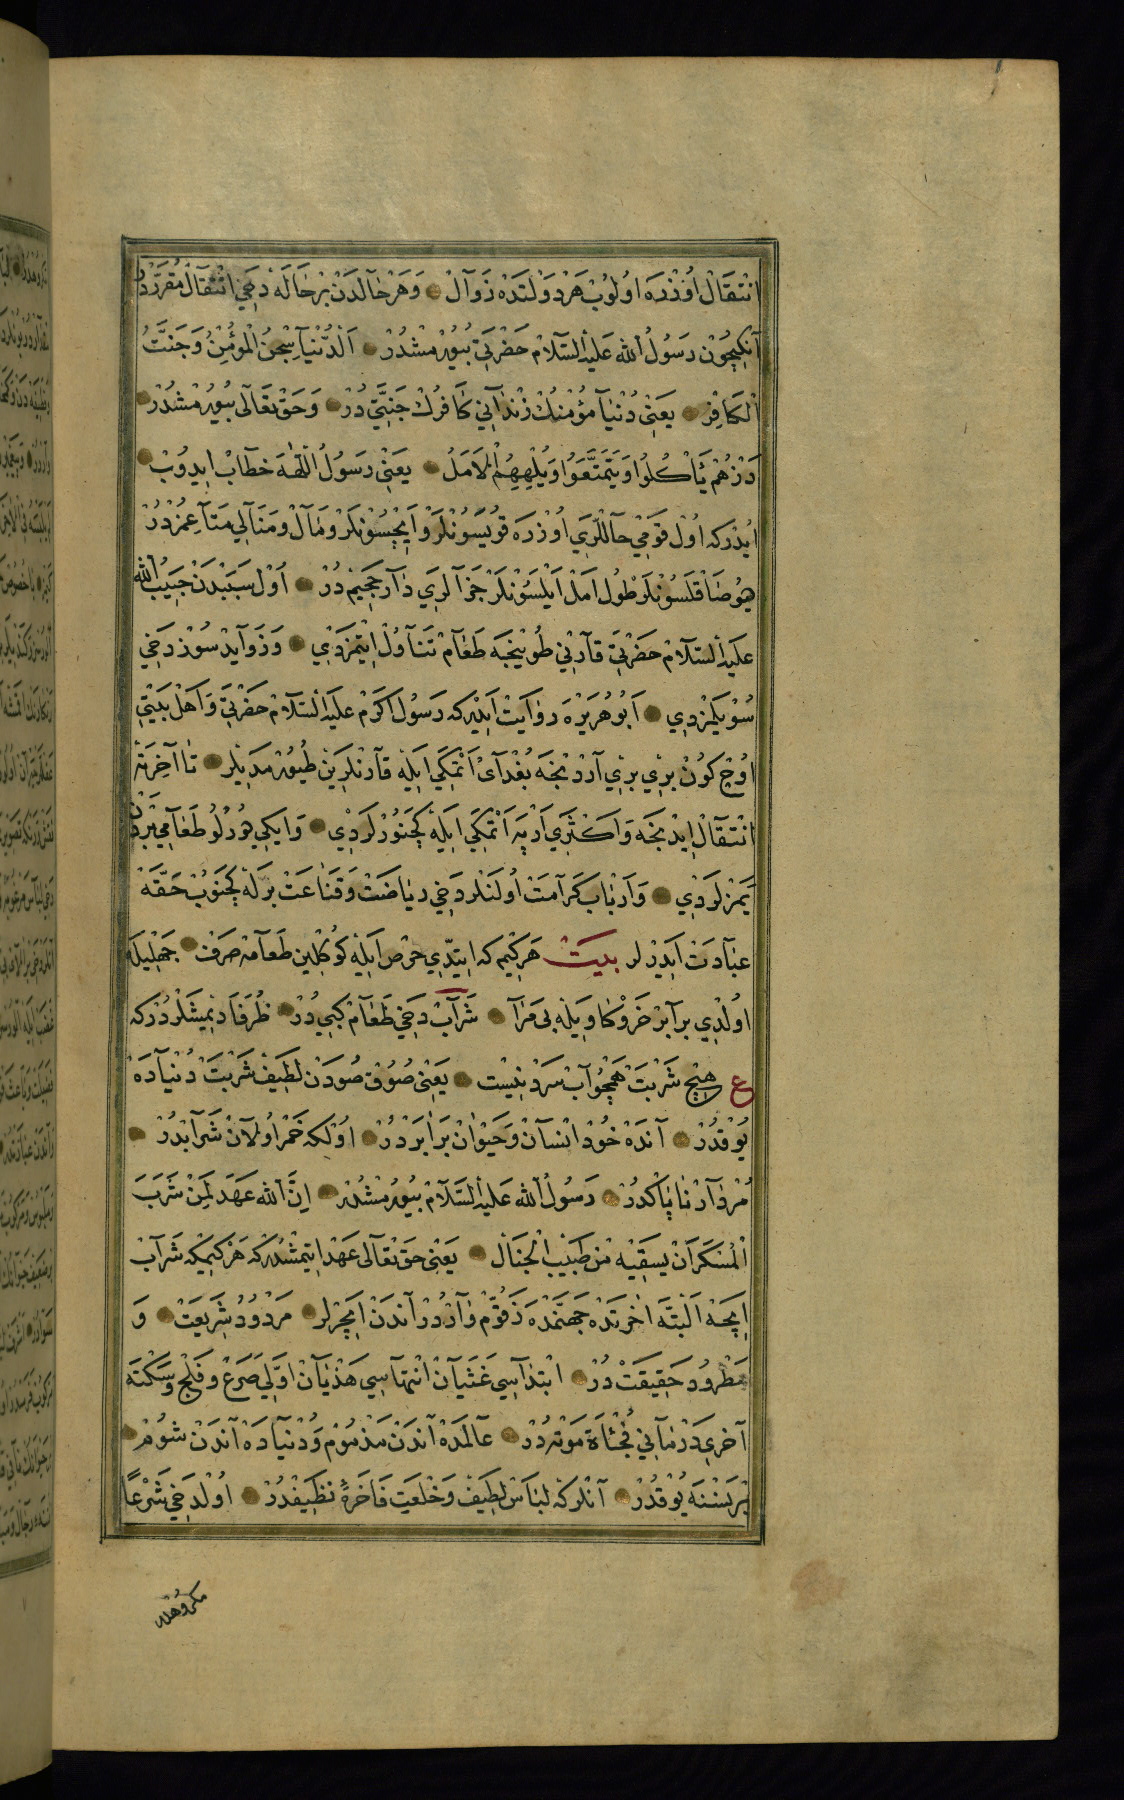 انْتِقَالْ اُوزْرَه اوُلوُبْ هَرْ دَوْلَتْدَه زَوَآلْ وَهَرْ حَآلْدَنْ بِرْ حَالَه دَخِي انْتِقَالْ مُقَرَّرْدُرْ
آنِكْچُونْ رَسُولُ اللّٰه عَلَيْهِ السَّلَامْ حَضْرَتِي بُيُورْمِشْدُرْ اَلدُّنْيَا سِجْنُ الْمُؤْمِنُ وَجَنَّتُ
الْكَافِرِ يَعْنِي دُنْيَا مُؤْمِنُكْ زِنْدَانِي كَافِرُكْ جَنَّتِي دُرْ وَحَقْ تَعَالَى بُيُورْمِشْدُرْ
ذَرْهُمْ يَأْكُلُوا وَيَتَمَتَّعُوا وَيُلْهِهِمُ الْاَمَلُ يَعْنِي رَسُولُ اللّٰهَه خِطَابْ ايدُوبْ
ايُدْرْكه اوُلْ قَوْمِي حَاللَّرِي اُوزْرَه قُويْسُونْلَرْ وَايِچْسُونْلَرْ وَمَالْ وَمَنَالِي مَتَاعْ
هَوُصَا قِلْسُونْلَرْ طُولِ اَمَلْ اَيْلَسُونْلَرْ جَزَالَرِي دَارْ جَحِيمْ دُرْ اَوُلْ سَبَبْدَنْ حَبِيبُ اللّٰه
عَلَيْهِ السَّلَامْ حَضْرَتِي قَارْنِي طُوينْجَه طَعَامْ تَنَاوُلْ اِيتْمَزْدِي وَزَوَايِدْ سُوزْ دَخِي
سُوْيلَمَزْدِي اَبُو هُرَيْرَه رِوَايَتْ ايدَر كه رَسُولْ اَكْرَمْ عَلَيْهِ السَّلَامْ حَضْرَتِي وَاَهْلِ بَيْتِي
اوُچْ كُونْ بِرِي بِرِي آرْدِنْجَه بُغْدَاىْ اَتْمَكِي ايله قَارْنلَرِين طُيُورْمَدِيلَر تَا آخِرَتَه
انْتِقَالْ ايدِنْجَه وَاَكْثَرِي اَرْپَه اَتْمَكِي ايلَه كَچِنُورْلَرْدِي وَايكِي دُرْلُو طَعَامِي بِرْدَنْ
يِمَزْلَرْدِي وَاَرْبَابِ كَرَامَتْ اوُلَنْلَر دَخِي رِيَاضَتْ وَقَنَاعَتْ بِرْلَه كَچِنُوبْ حَقَّه
عِبَادَتْ ايدَرْلَر بيت هَر كِيم كه ايتْدِي حِرْص ايله كُوكْلِين طَعَامه صَرْفْ جَهْليله
اوُلْدِي بَرَابَرْ خَر وْ كَاو ايله بِى مَرَا شَرَابْ دَخِي طَعَامْ كِبِي دُرْ ظُرَفَا دِيمِشْلَرْدُرْكه
ع هِيچْ شَرْبَتْ هَمْچُو آبِ سَرْد نيست يَعْنِي صُوُقْ صُودَنْ لَطِيفْ شَرْبَتْ دُنْيَادَه
يُوقْدُرْ آنْدَه خُودْ انْسَانْ وَحَيَوَانْ بَرَابَرْدُرْ اوُلْكه خَمْر اوُلَانْ شَرَابْدُرْ
مُرْدَارْ نَاپَاكْدُرْ رَسُولُ اللّٰه عَلَيْهِ السَّلَامْ بُيُورْمِشْدُر اِنَّ اللّٰه عَهِدَ لِمَنْ شَرِبَ
الْمُسْكِرَ اَنْ يَسْقِيَهُ مِنْ طِينَةِ الْخَبَالِ يَعْنِي حَقْ تَعَالَى عَهْد ايتْمِشْدُرْكه هَر كِيمْكه شَرَابْ
ايچه اَلْبَتَّه آخِرَتْدَه جَهَنَّمْدَه زَقُّومْ وَارْدُرْ آنْدَنْ ايچَرْلَر مَرْدُودُ شَرِيعَتْ وَ
مَطْرُودُ حَقِيقَتْ دُرْ ابْتِدَاسِي غَثَيَانْ انْتِهَاسِي هَذَيَانْ اوَّلِي صَرَعْ وَفَلْج وَسَكْتَه
آخِرِي دَرْمَانِي فُجْأَة مَوْتدُرْ عَالَمْدَه آنْدَنْ مَذْمُومْ وَدُنْيَادَه آنْدَنْ شُومْ
بِرْ نَسْنَه يُوقْدُرْ آنْلَر كه لِبَاسْ لَطِيفْ وَخِلْعَتِ فَاخِرَهٔ نَظِيفْدُرْ اوُلْ دَخِي شَرْعًا
مكروهدر